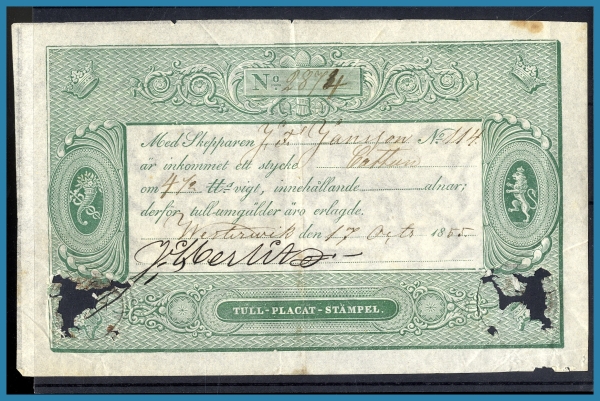 No. 2874
Med Skepparen J. P. Jönsson No. 114
är inkommet ett stycke Cattun
om 7 ½ ℔s vigt, innehållande alnar;
derför tull-umgälder äro erlagde.
Westerwik den 17 Octr 1855
TULL-PLACAT-STÄMPEL.